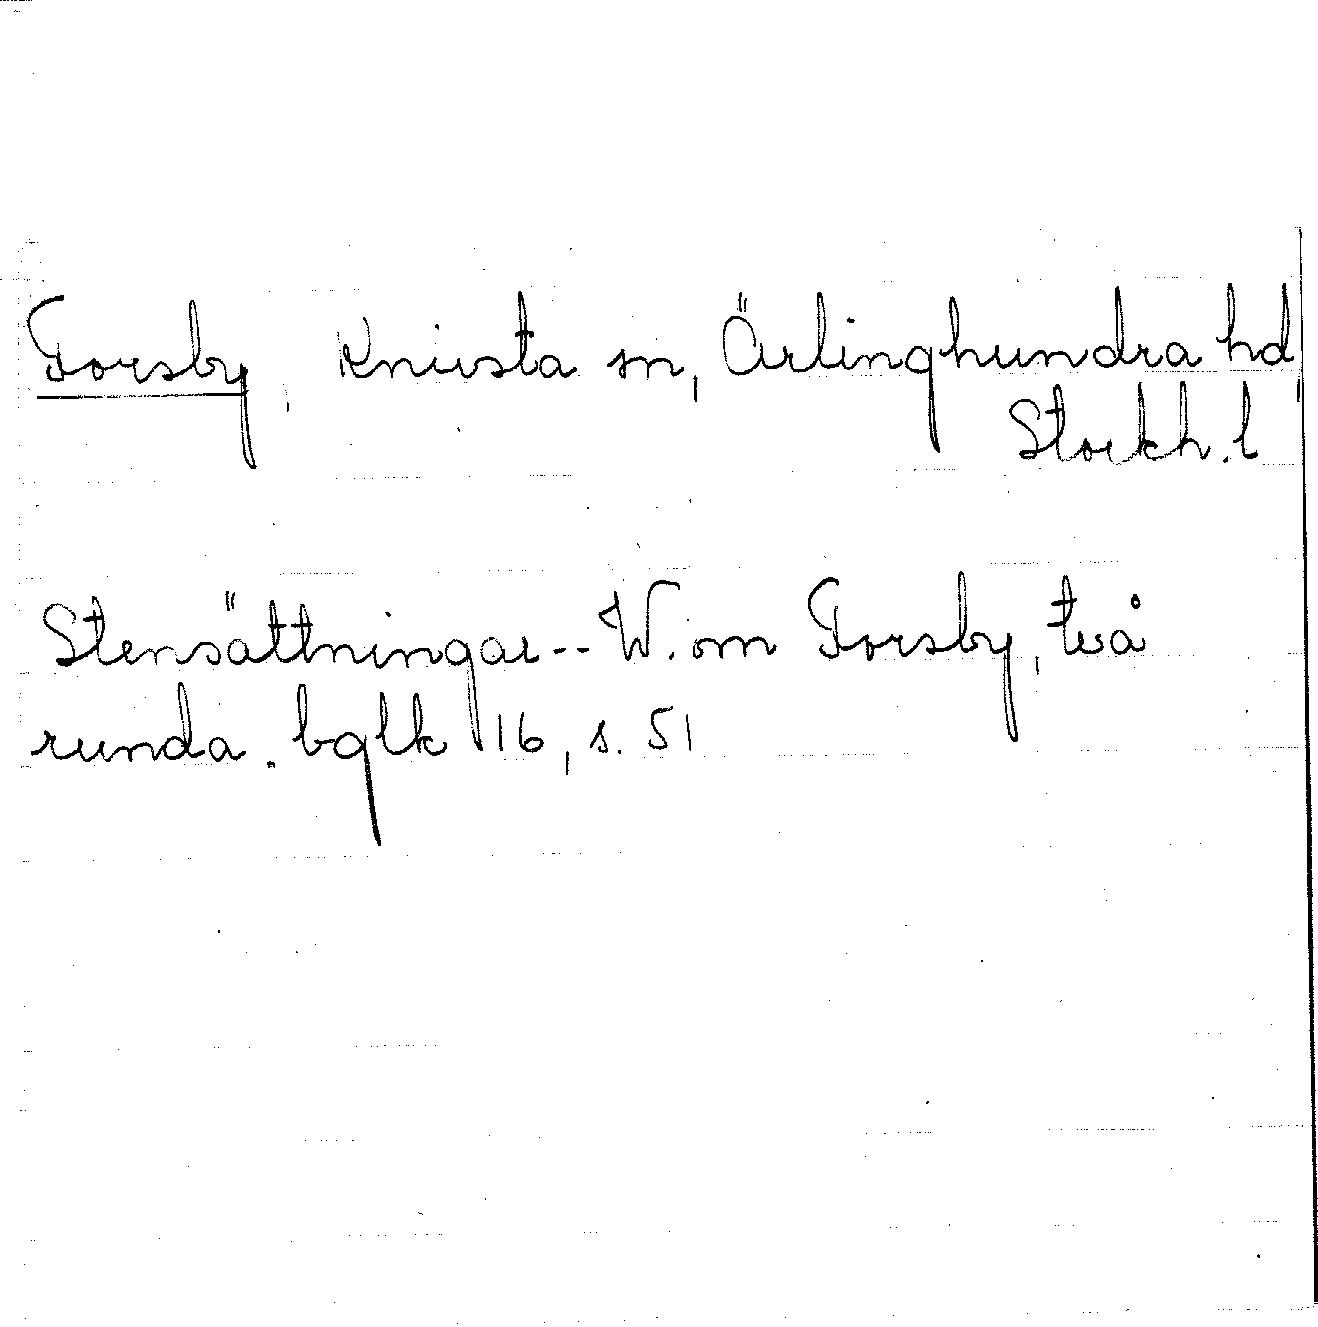 Forsby, Knivsta sn, Ärlinghundra hd,
Stockh. l
Stensättningar -- W. om Forsby, två
runda. bglk 16, s. 51